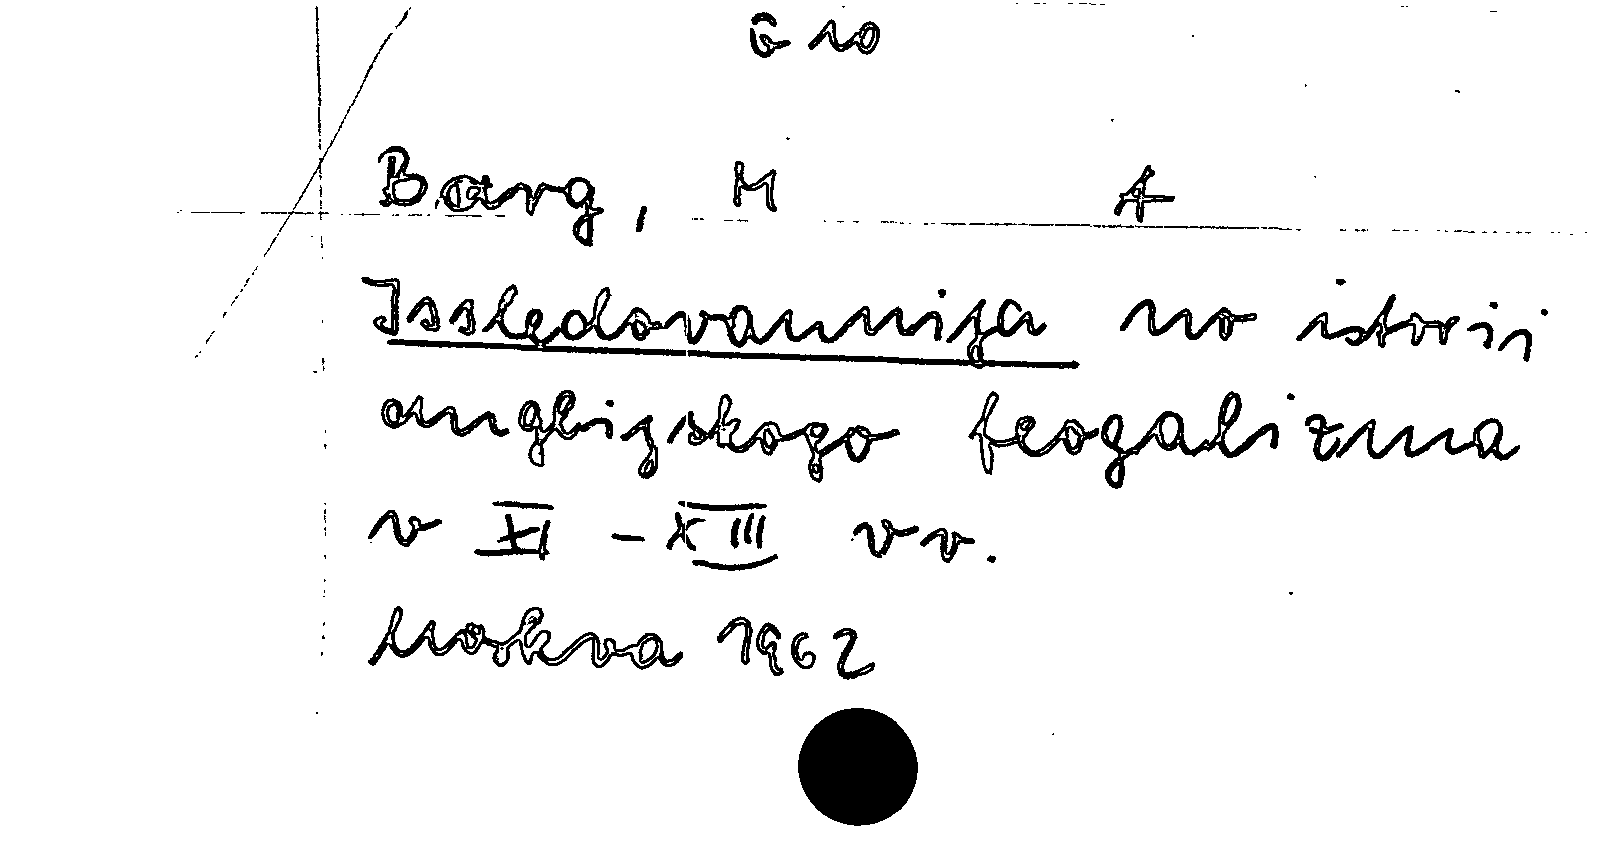 G no
Barg, M A
Issledovannija no istorii
anglijskogo feogalizma
v XI - XIII vv.
Moskva 1962